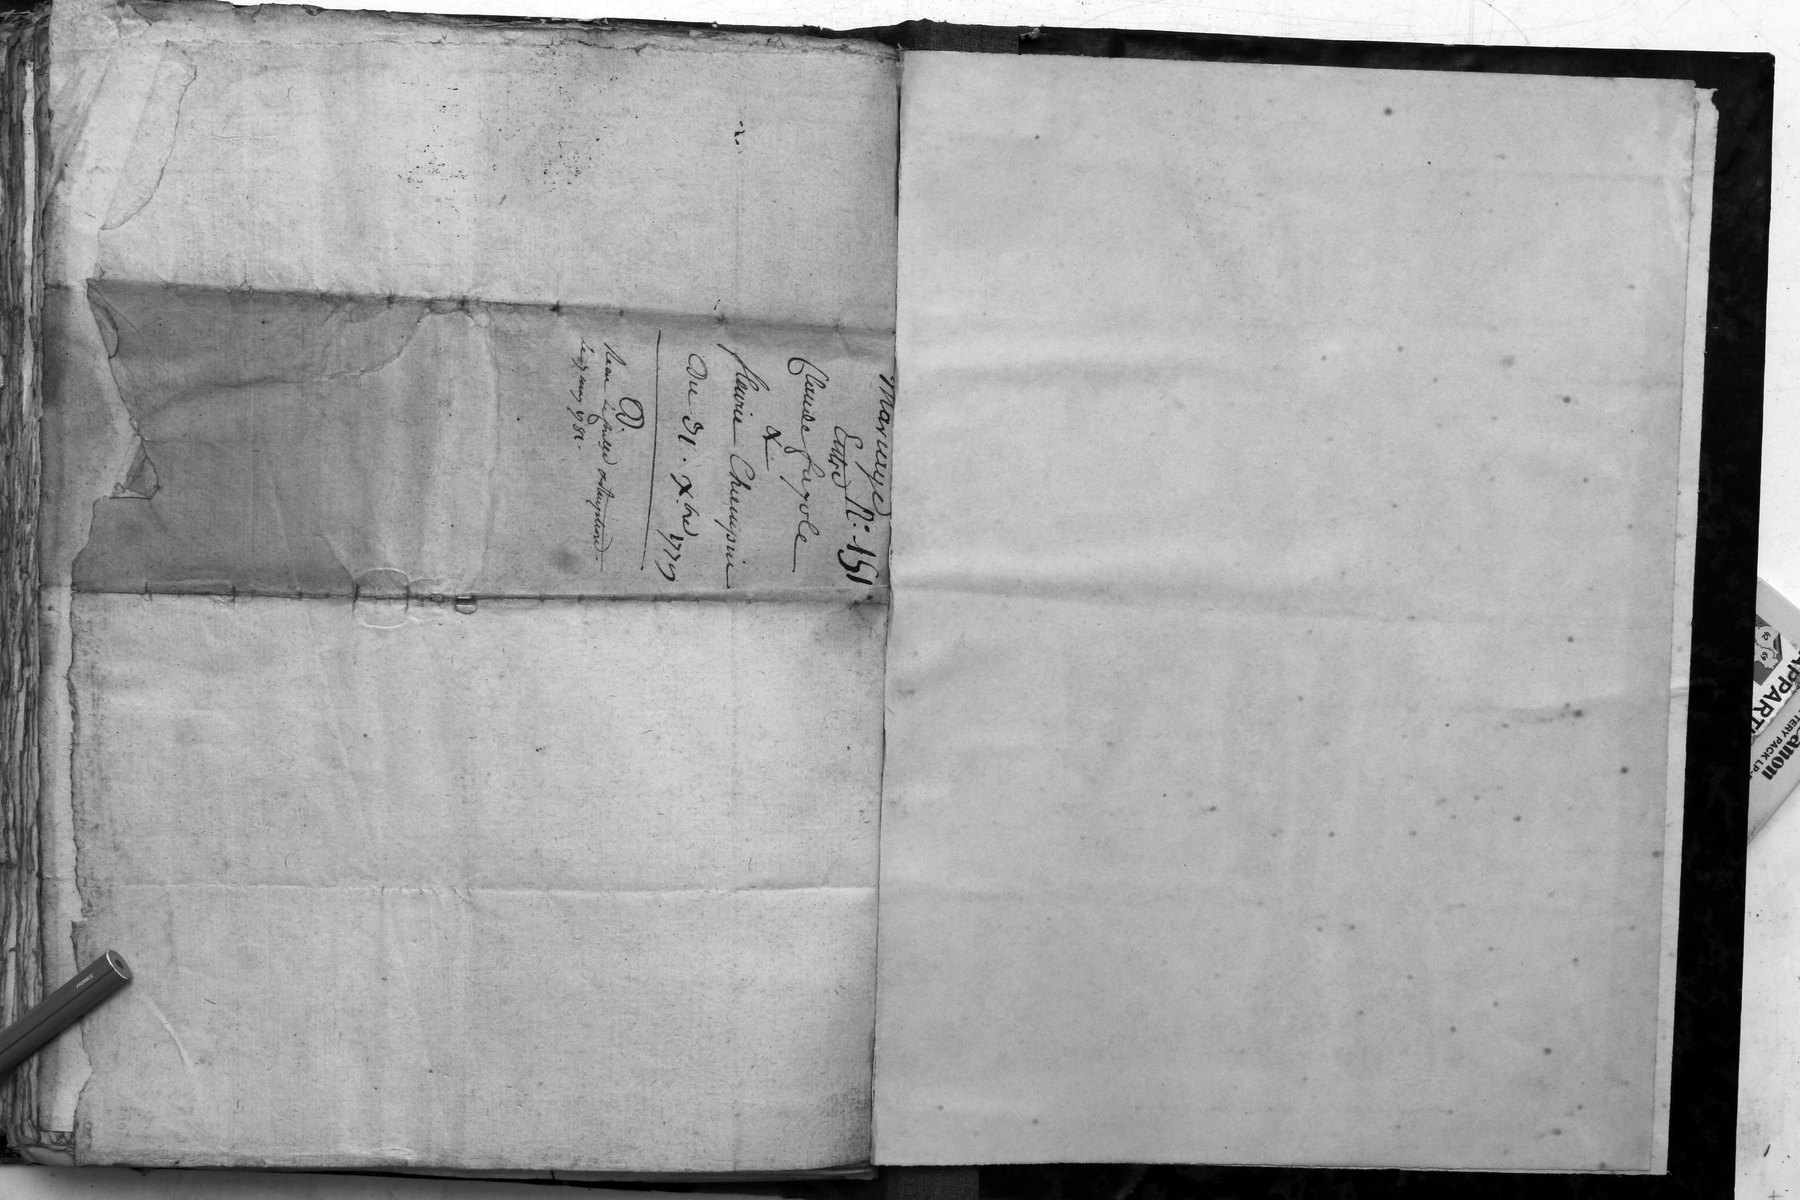 Mariage
Entre N.° 151.
Claude fayole
&
fleurie Champin
Du 31. xbre 1779
D.
FRANCE
42
69
APPART
Canon
TTERY PACK LP-